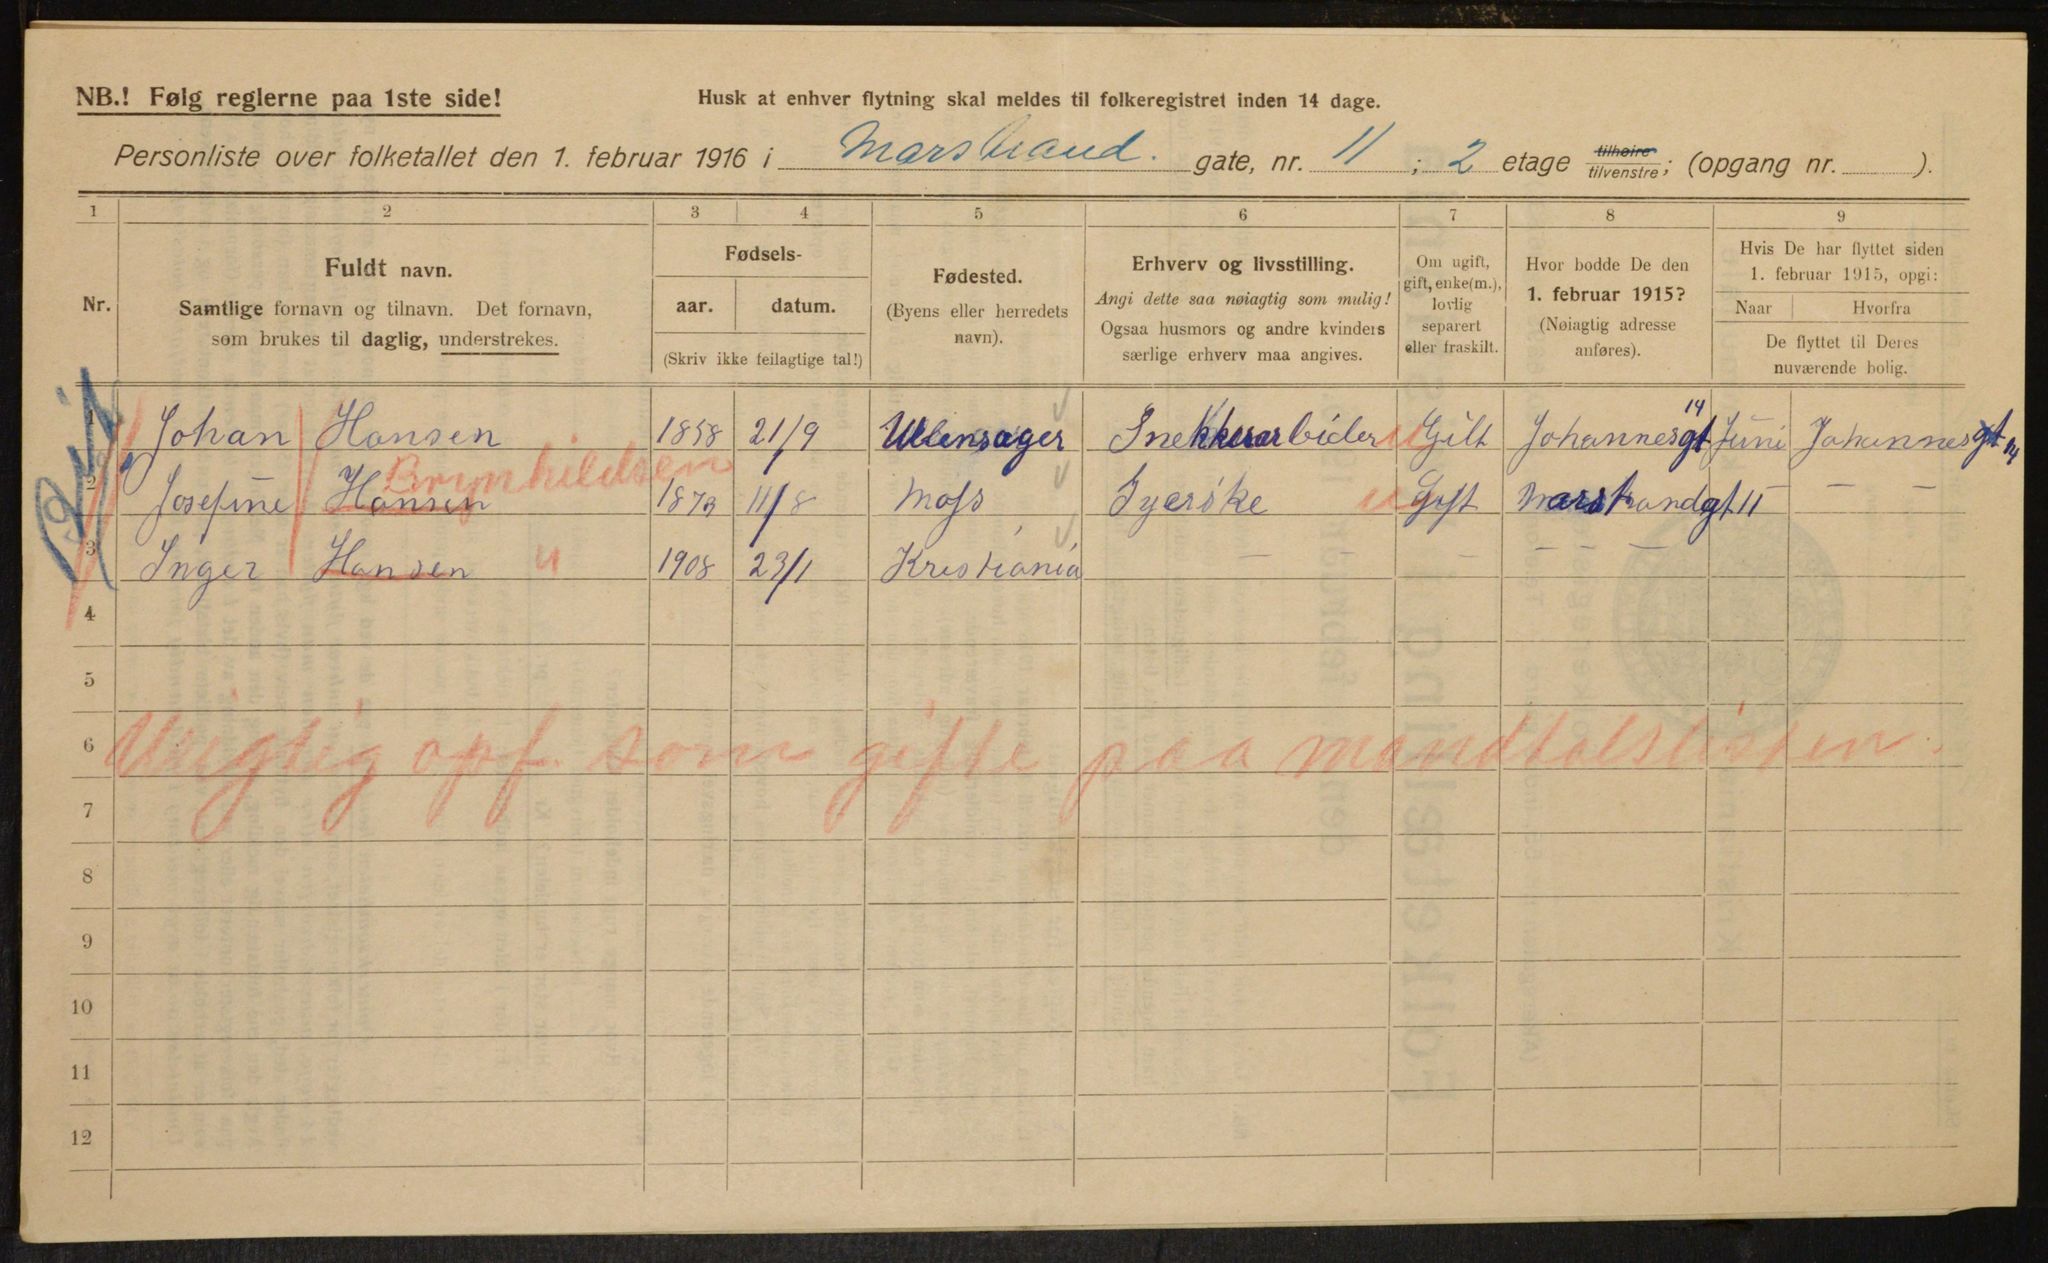 NB.! Følg reglerne paa 1ste side!
Husk at enhver flytning skal meldes til folkeregistret inden 14 dage.
Personliste over folketallet den 1. februar 1916 i Marstrand. gate, nr. 11 ; 2 etage tilhøire tilvenstre; (opgang nr. ).
1 2 3 4 5 6 7 8 9
Nr.
Fuldt navn.
Samtlige fornavn og tilnavn. Det fornavn,
som brukes til daglig, understrekes.
Fødsels-
aar. datum.
(Skriv ikke feilagtige tal!)
Fødested.
(Byens eller herredets
navn).
Erhverv og livsstilling.
Angi dette saa nøiagtig som mulig!
Ogsaa husmors og andre kvinders
særlige erhverv maa angives.
Om ugift,
gift, enke(m.),
lovlig
separert
eller fraskilt.
Hvor bodde De den
1. februar 1915?
(Nøiagtig adresse
anføres).
Hvis De har flyttet siden
1. februar 1915, opgi:
Naar Hvorfra
De flyttet til Deres
nuværende bolig.
1 Johan Hansen 1858 21/9 Ullensager Snekkerarbeider u Gift Johannesgt 14 Juni Johannesgt 14
Brynhildsen
2 Josefine Hansen 1873 11/8 Moss Syerske u Gift Marstrandgt 11 — — —
3 Inger Hansen u 1908 23/1 Kristiania — — — — — —
4
5
6 Urigtig opf. som gifte paa mandtalslisten.
7
8
9
10
11
12